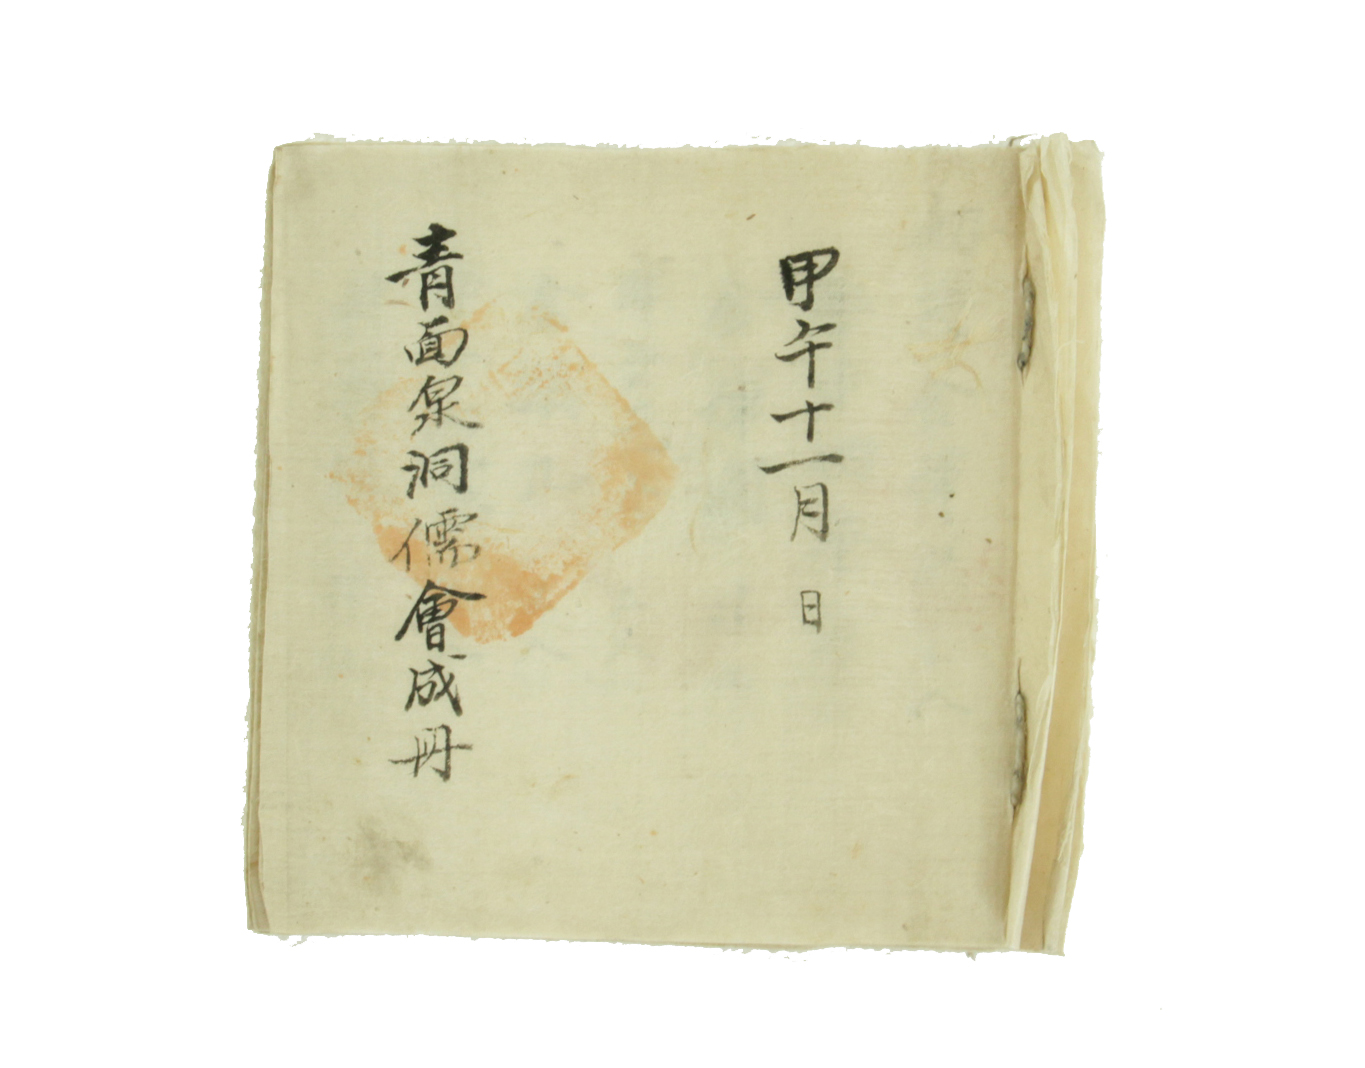 甲午十一月 日
青面泉洞儒會成冊